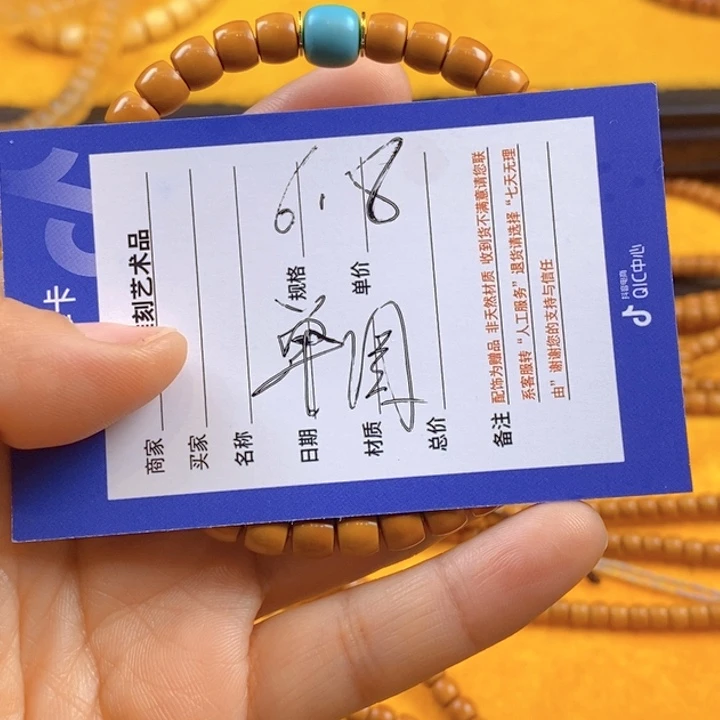 卡
商家 刻艺术品
买家
名称
日期 规格
材质 单价
6.8
总价
备注 配饰为赠品 非天然材质 收到货不满意请您联
系客服转“人工服务”退货请选择“七天无理
由”谢谢您的支持与信任
抖音电商
QIC中心